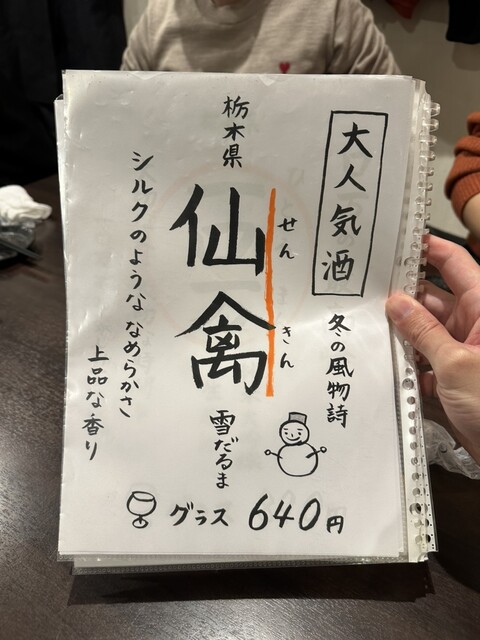 大人気酒
冬の風物詩
栃木県
仙禽
せんきん
雪だるま
シルクのようななめらかさ
上品な香り
グラス 640円